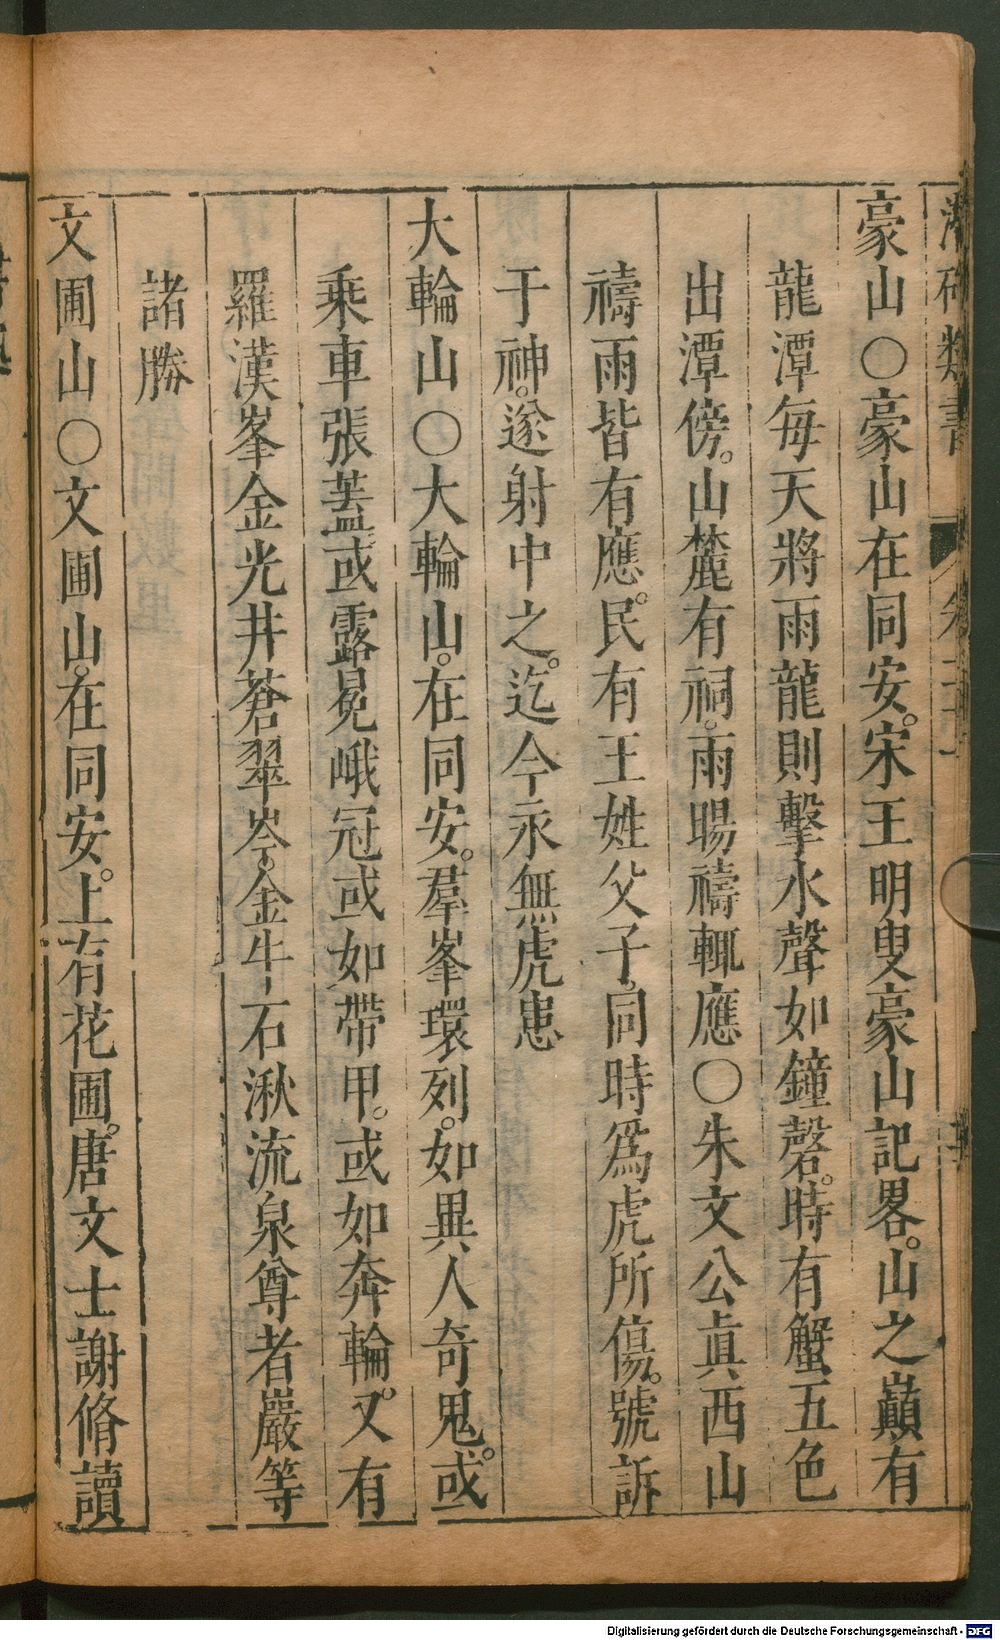 豪山○豪山在同安。宋王明叟豪山記畧。山之巔有
龍潭每天將雨龍則擊水聲如鐘磬。時有蟹五色
出潭傍。山麓有祠。雨暘禱輒應○朱文公眞西山
禱雨皆有應。民有王姓父子。同時爲虎所傷。號訴
于神。遂射中之。迄今永無虎患
大輪山○大輪山。在同安。羣峯環列。如異人奇鬼。或
乘車張蓋或露冕峨冠或如帶甲。或如奔輪。又有
羅漢峯金光井蒼翠岑金牛石湫流泉尊者巖等
諸勝
文圃山○文圃山。在同安。上有花圃。唐文士謝脩讀
Digitalisierung gefördert durch die Deutsche Forschungsgemeinschaft - DFG